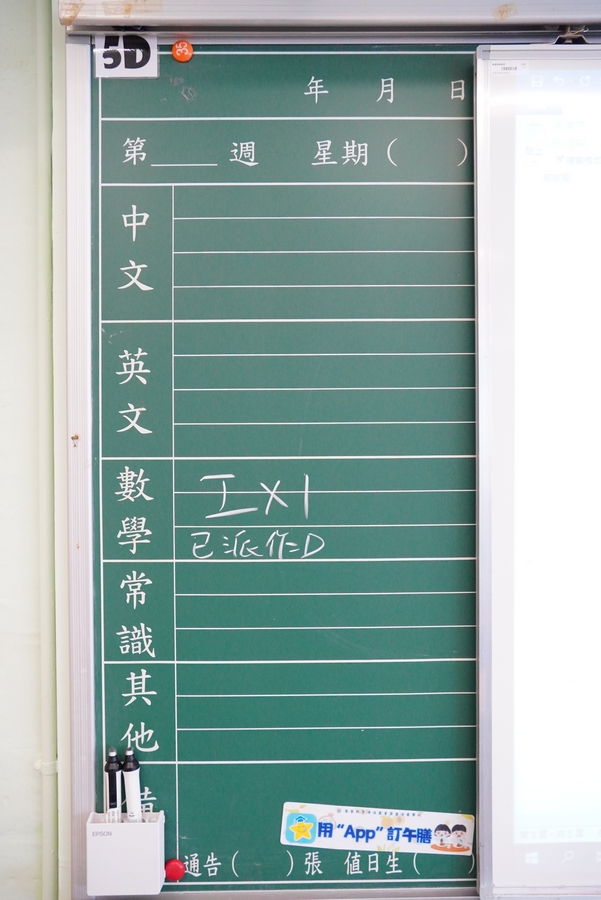 5D
35
年 月 日
第____週 星期( )
中文
英文
數學
工×1
已派作D
常識
其他
備
EPSON
用“App”訂午膳
通告( )張 值日生( )